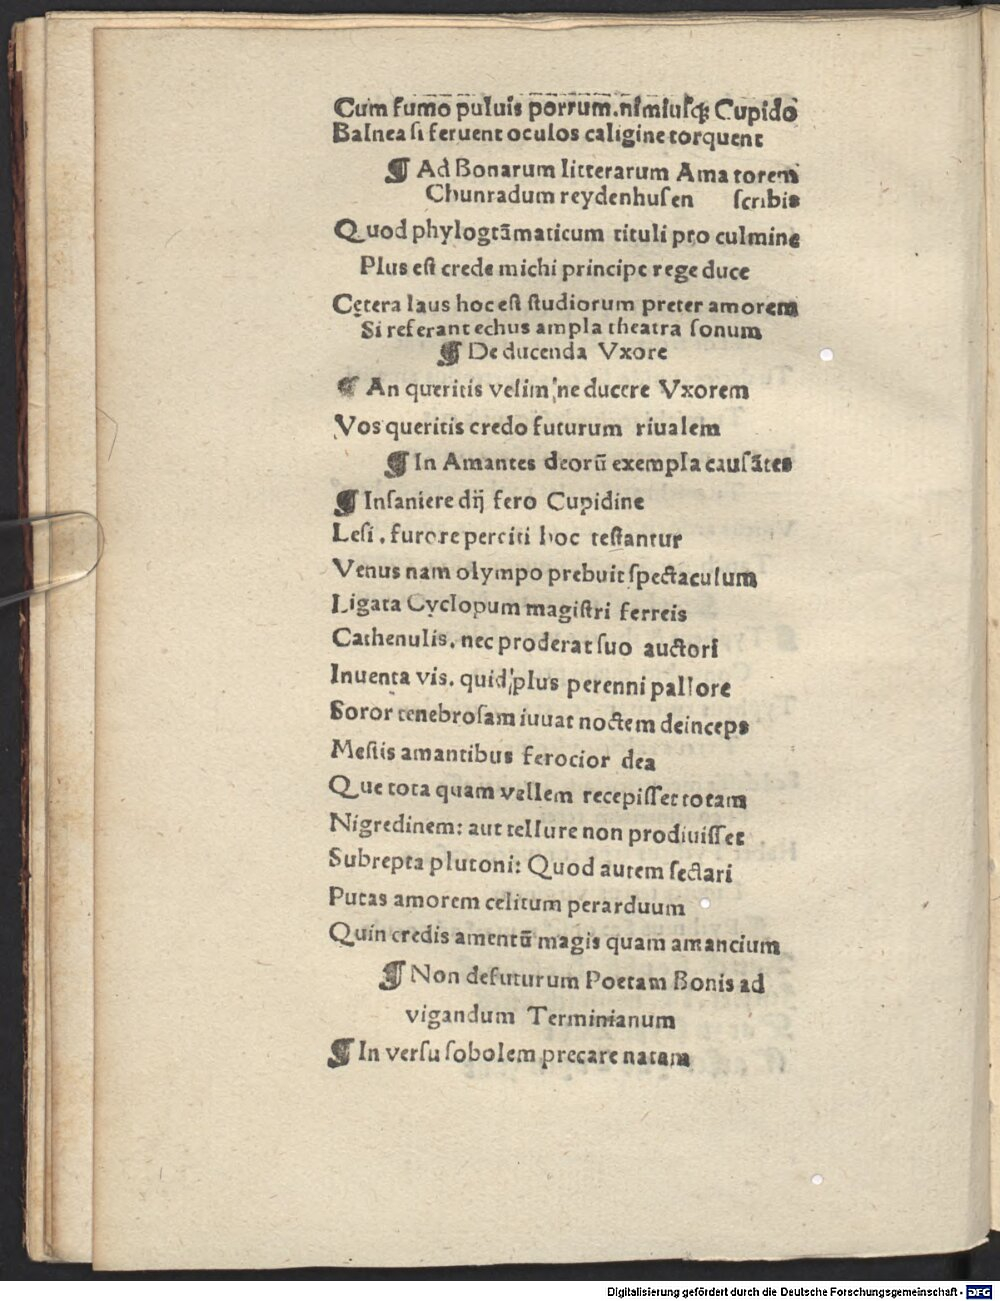 Cum fumo puluis porrum.nimiusq; Cupido
Balnea si feruent oculos caligine torquent
¶ Ad Bonarum litterarum Ama torem
Chunradum reydenhusen scribis
Quod phylogrāmaticum tituli pro culmine
Plus est crede michi principe rege duce
Cętera laus hoc est studiorum preter amorem
Si referant echus ampla theatra sonum
¶ De ducenda Vxore
¶ An queritis velim ne ducere Vxorem
Vos queritis credo futurum riualem
¶ In Amantes deorū exempla causātes
¶ Insaniere dij fero Cupidine
Lesi. furore perciti hoc testantur
Venus nam olympo prebuit spectaculum
Ligata Cyclopum magistri ferreis
Cathenulis. nec proderat suo auctori
Inuenta vis. quid plus perenni pallore
Soror tenebrosam iuuat noctem deinceps
Mestis amantibus ferocior dea
Que tota quam vellem recepisset totam
Nigredinem: aut tellure non prodiuisset
Subrepta plutoni: Quod autem sectari
Putas amorem celitum perarduum
Quin credis amentū magis quam amancium
¶ Non defuturum Poetam Bonis ad
vigandum Terminianum
¶ In versu sobolem precare natam
Digitalisierung gefördert durch die Deutsche Forschungsgemeinschaft - DFG